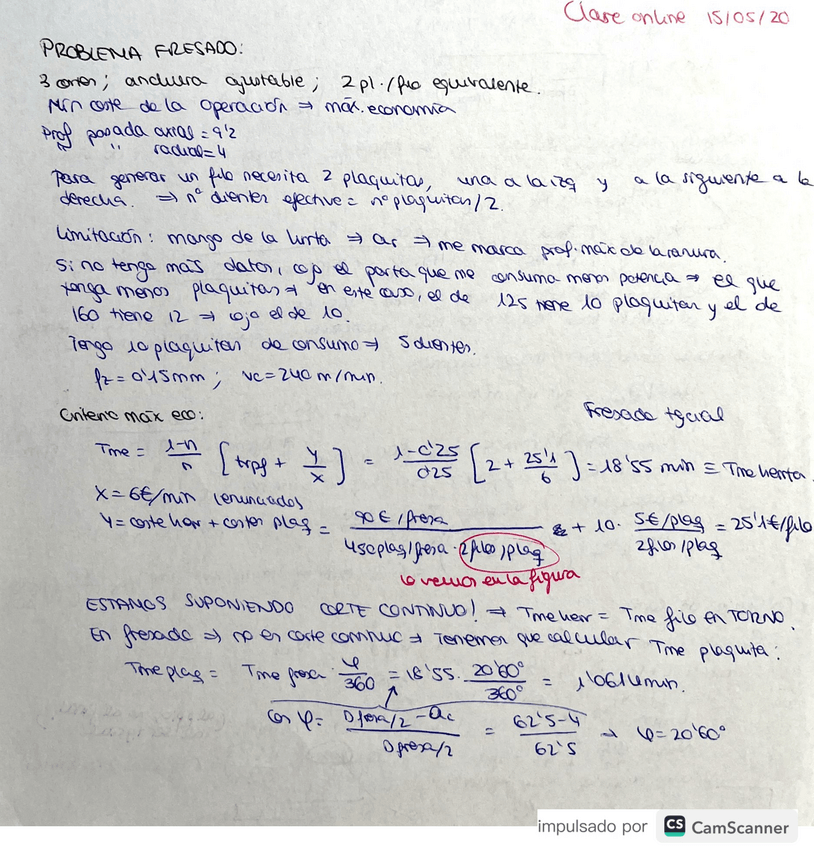 Clase online 15/05/20
PROBLEMA FRESADO:
3 cortes; anchura ajustable; 2 pl./filo equivalente.
Min coste de la operación ⇒ máx. economía
Prof pasada axial = 9'2
" " radial = 4
Para generar un filo necesita 2 plaquitas, una a la izq y a la siguiente a la
derecha. ⇒ nº dientes efectivo = nº plaquitas/2.
Limitación: mango de la hrrta ⇒ ar ⇒ me marca prof. máx de la ranura.
Si no tengo más datos, cojo el porta que me consuma menos potencia ⇒ el que
tenga menos plaquitas ⇒ en este caso, el de 125 tiene 10 plaquitas y el de
160 tiene 12 ⇒ cojo el de 10.
Tengo 10 plaquitas de consumo ⇒ 5 dientes.
fz = 0'15mm; vc = 240 m/min.
Criterio max eco: Fresado tgcial
Tme = 1-n/n [trpf + y/x] = 1-0'25/0'25 [2 + 25'1/6] = 18'55 min ≡ Tme herrta.
X = 6€/min (enunciado)
Y = coste herr + costes plaq = 90€/fresa / 450plaq/fresa · 2filo/plaq + 10 · 5€/plaq / 2filos/plaq = 25'1€/filo
lo vemos en la figura
ESTAMOS SUPONIENDO CORTE CONTINUO! ⇒ Tme herr = Tme filo en TORNO.
En fresado ⇒ no es corte continuo ⇒ Tenemos que calcular Tme plaquita:
Tme plaq = Tme fresa · φ/360 = 18'55 · 20'60°/360° = 1'0614min.
cos φ = Dfresa/2 - ae / Dfresa/2 = 62'5-4 / 62'5 → φ = 20'60°
impulsado por CS CamScanner